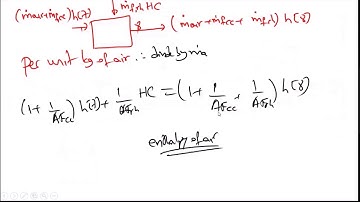 (ṁair+ṁfcc)h[7]
ṁfrh HC
8
(ṁair+ṁfcc+ ṁfrh) h[8]
Per unit kg of air ∴ divide by ṁa
(1+ 1/AFcc) h[7]+ 1/AFrh HC = (1+ 1/AFcc + 1/AFrh) h[8]
enthalpy of air